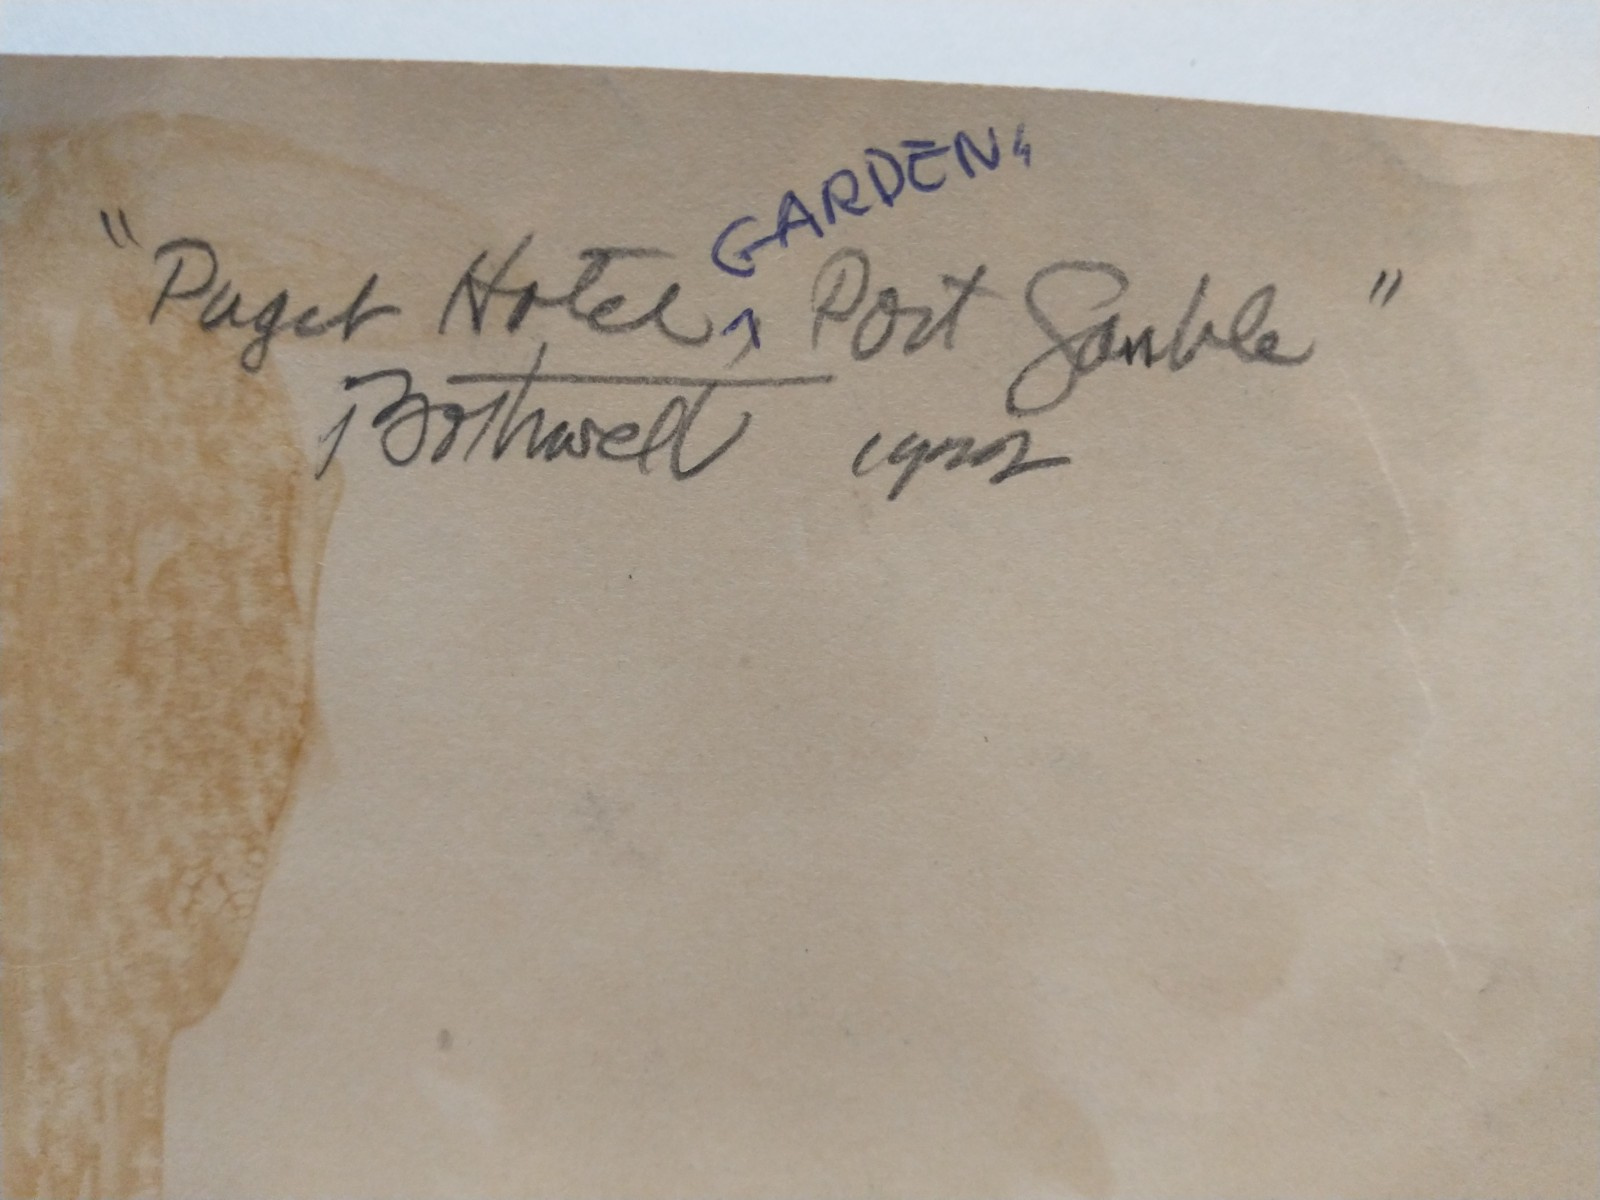 GARDEN,
"Puget Hotel, ^ Port Gamble"
Bothwell